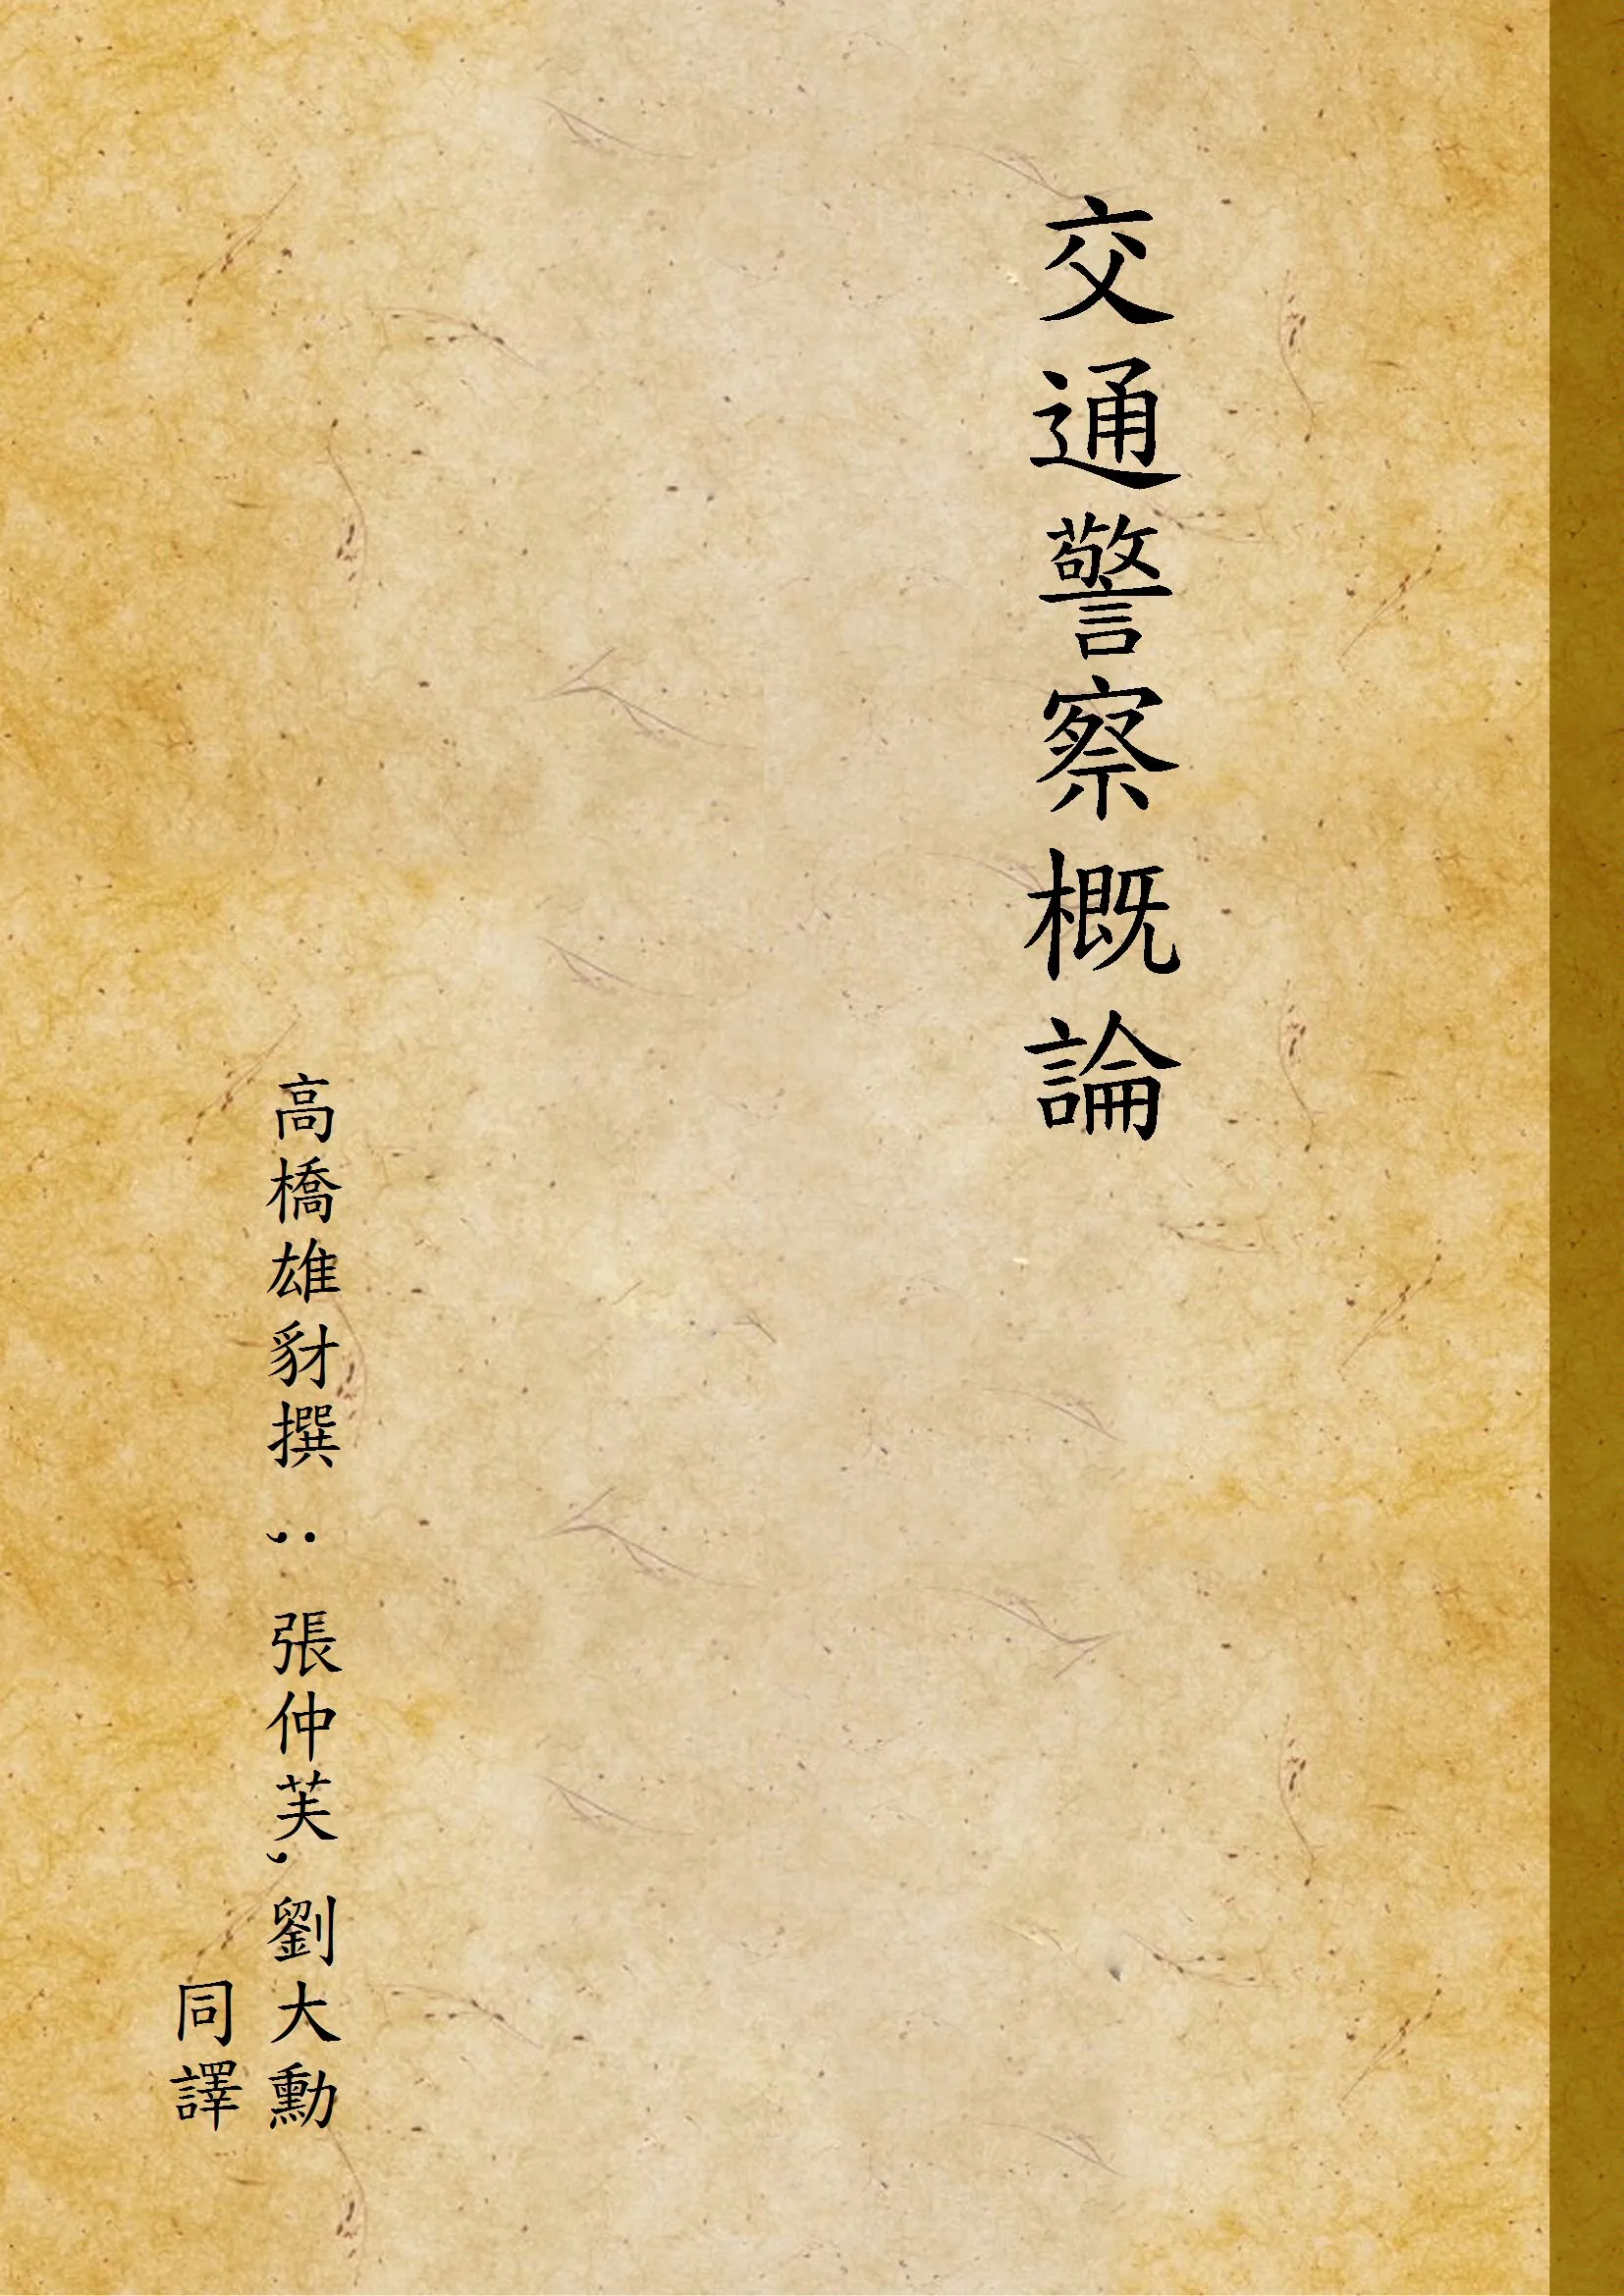 交通警察概論
高橋雄豺撰 ; 張仲芙, 劉大勳
同譯